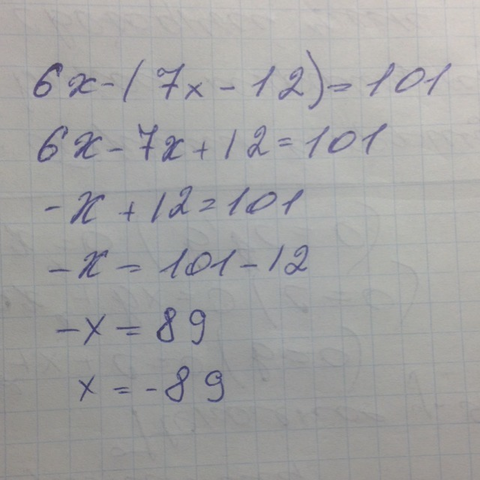 6x-(7x-12)=101
6x-7x+12=101
-x+12=101
-x=101-12
-x=89
x=-89